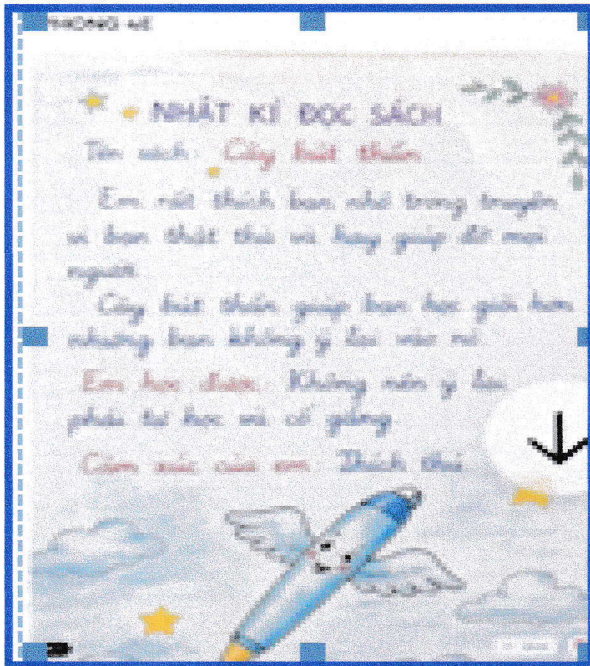 NHẬT KÍ ĐỌC SÁCH
Tên sách: Cây bút thần
Em rất thích bạn nhỏ trong truyện
vì bạn thật thà và hay giúp đỡ mọi
người.
Cây bút thần giúp bạn học giỏi hơn
nhưng bạn không ỷ lại vào nó.
Em học được: Không nên ỷ lại
phải tự học và cố gắng
Cảm xúc của em: Thích thú